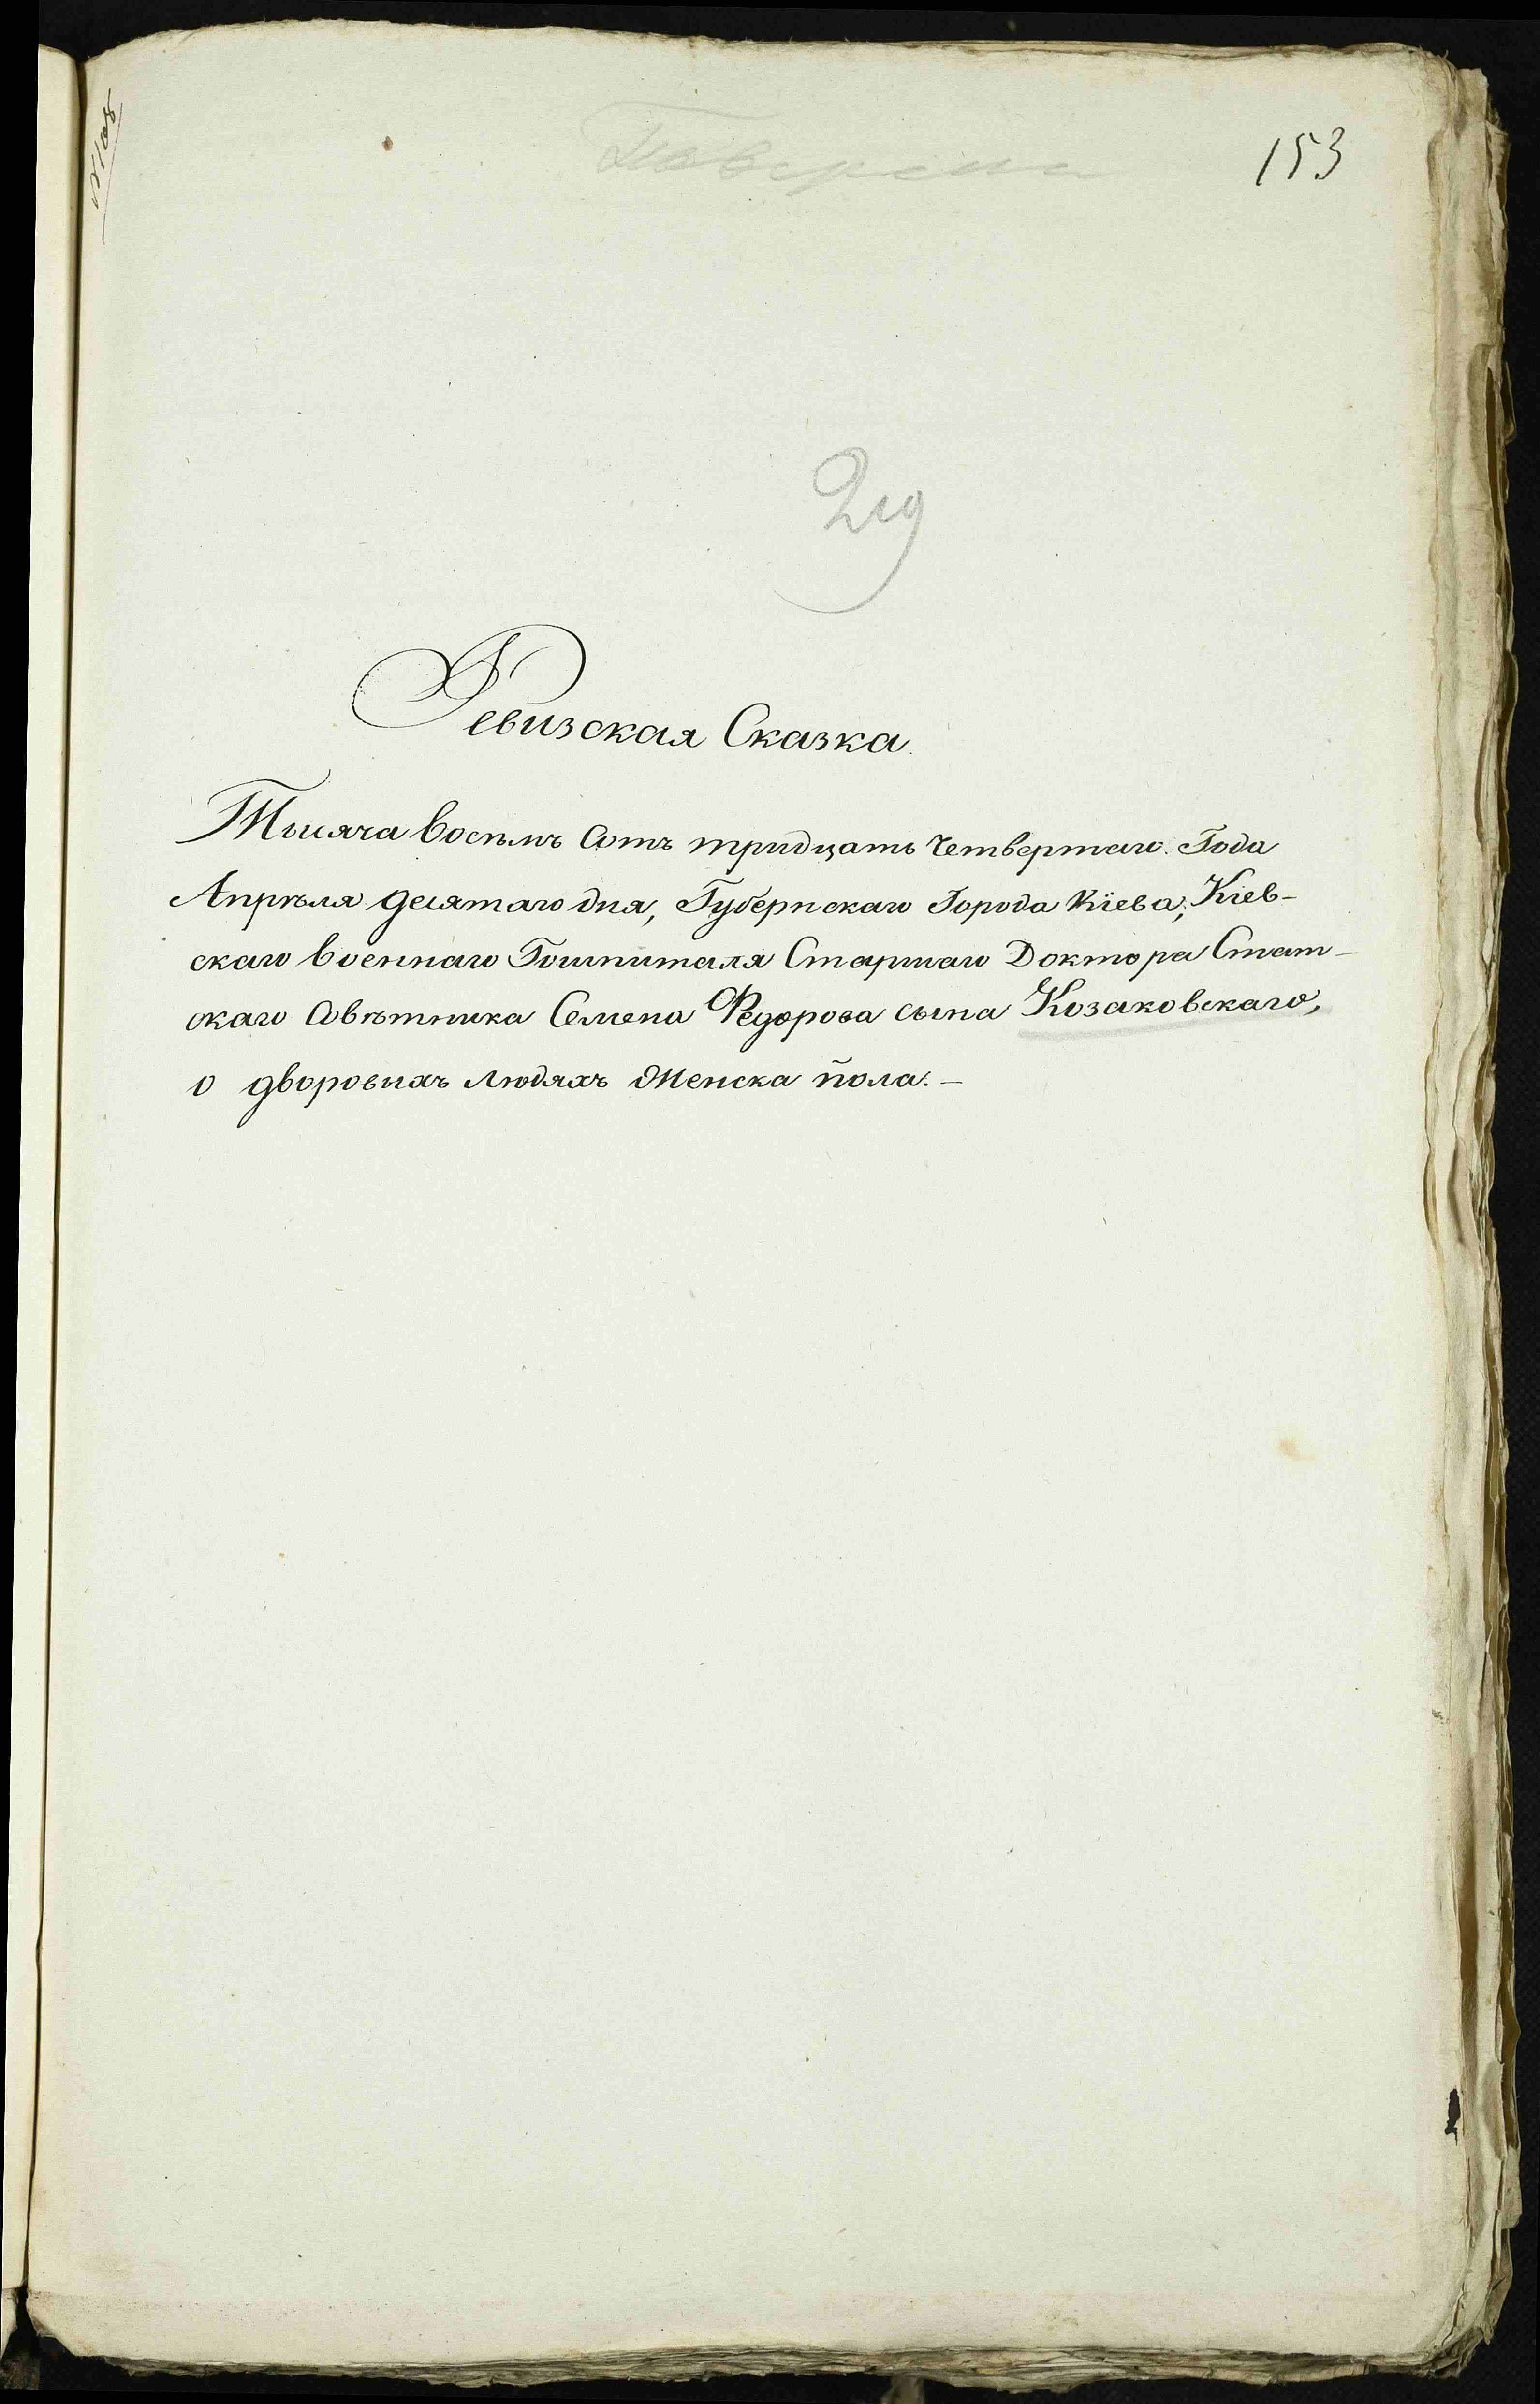 № 108
Поверена
153
219
Ревизская Сказка.
Тысяча восѣмъ Сотъ тридцать Четвертаго Года
Апрѣля десятаго дня, Губернскаго Города Кіева, Кіев-
скаго Военнаго Гошпиталя Старшаго Доктора Стат-
скаго Совѣтника Семена Федорова сына Козаковскаго,
о дворовыхъ людяхъ Женска пола.-